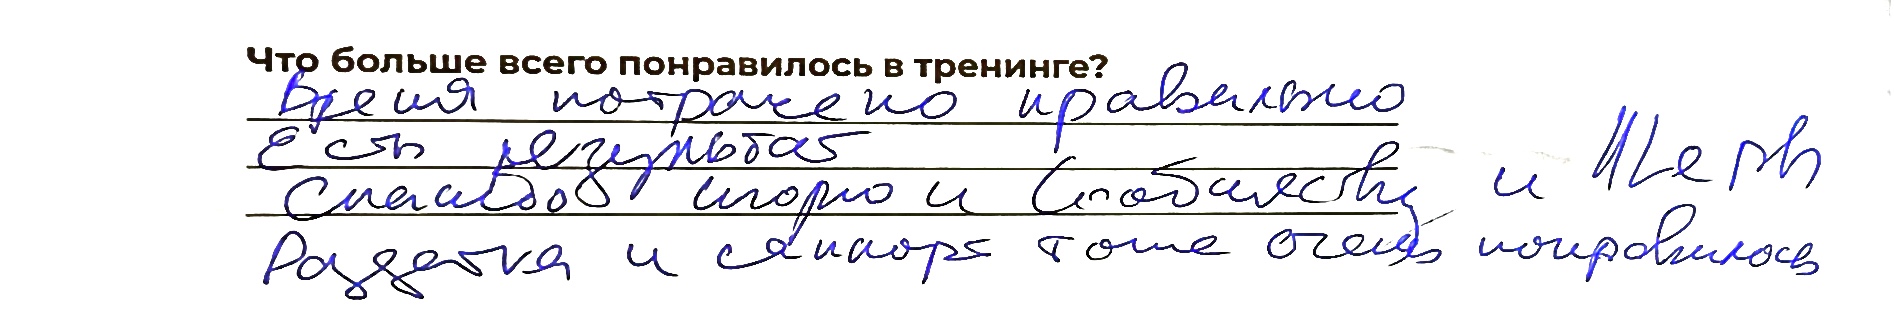 Что больше всего понравилось в тренинге?
Время потрачено правильно
Есть результат
Спасибо и и
Раздатка и тоже очень понравилось